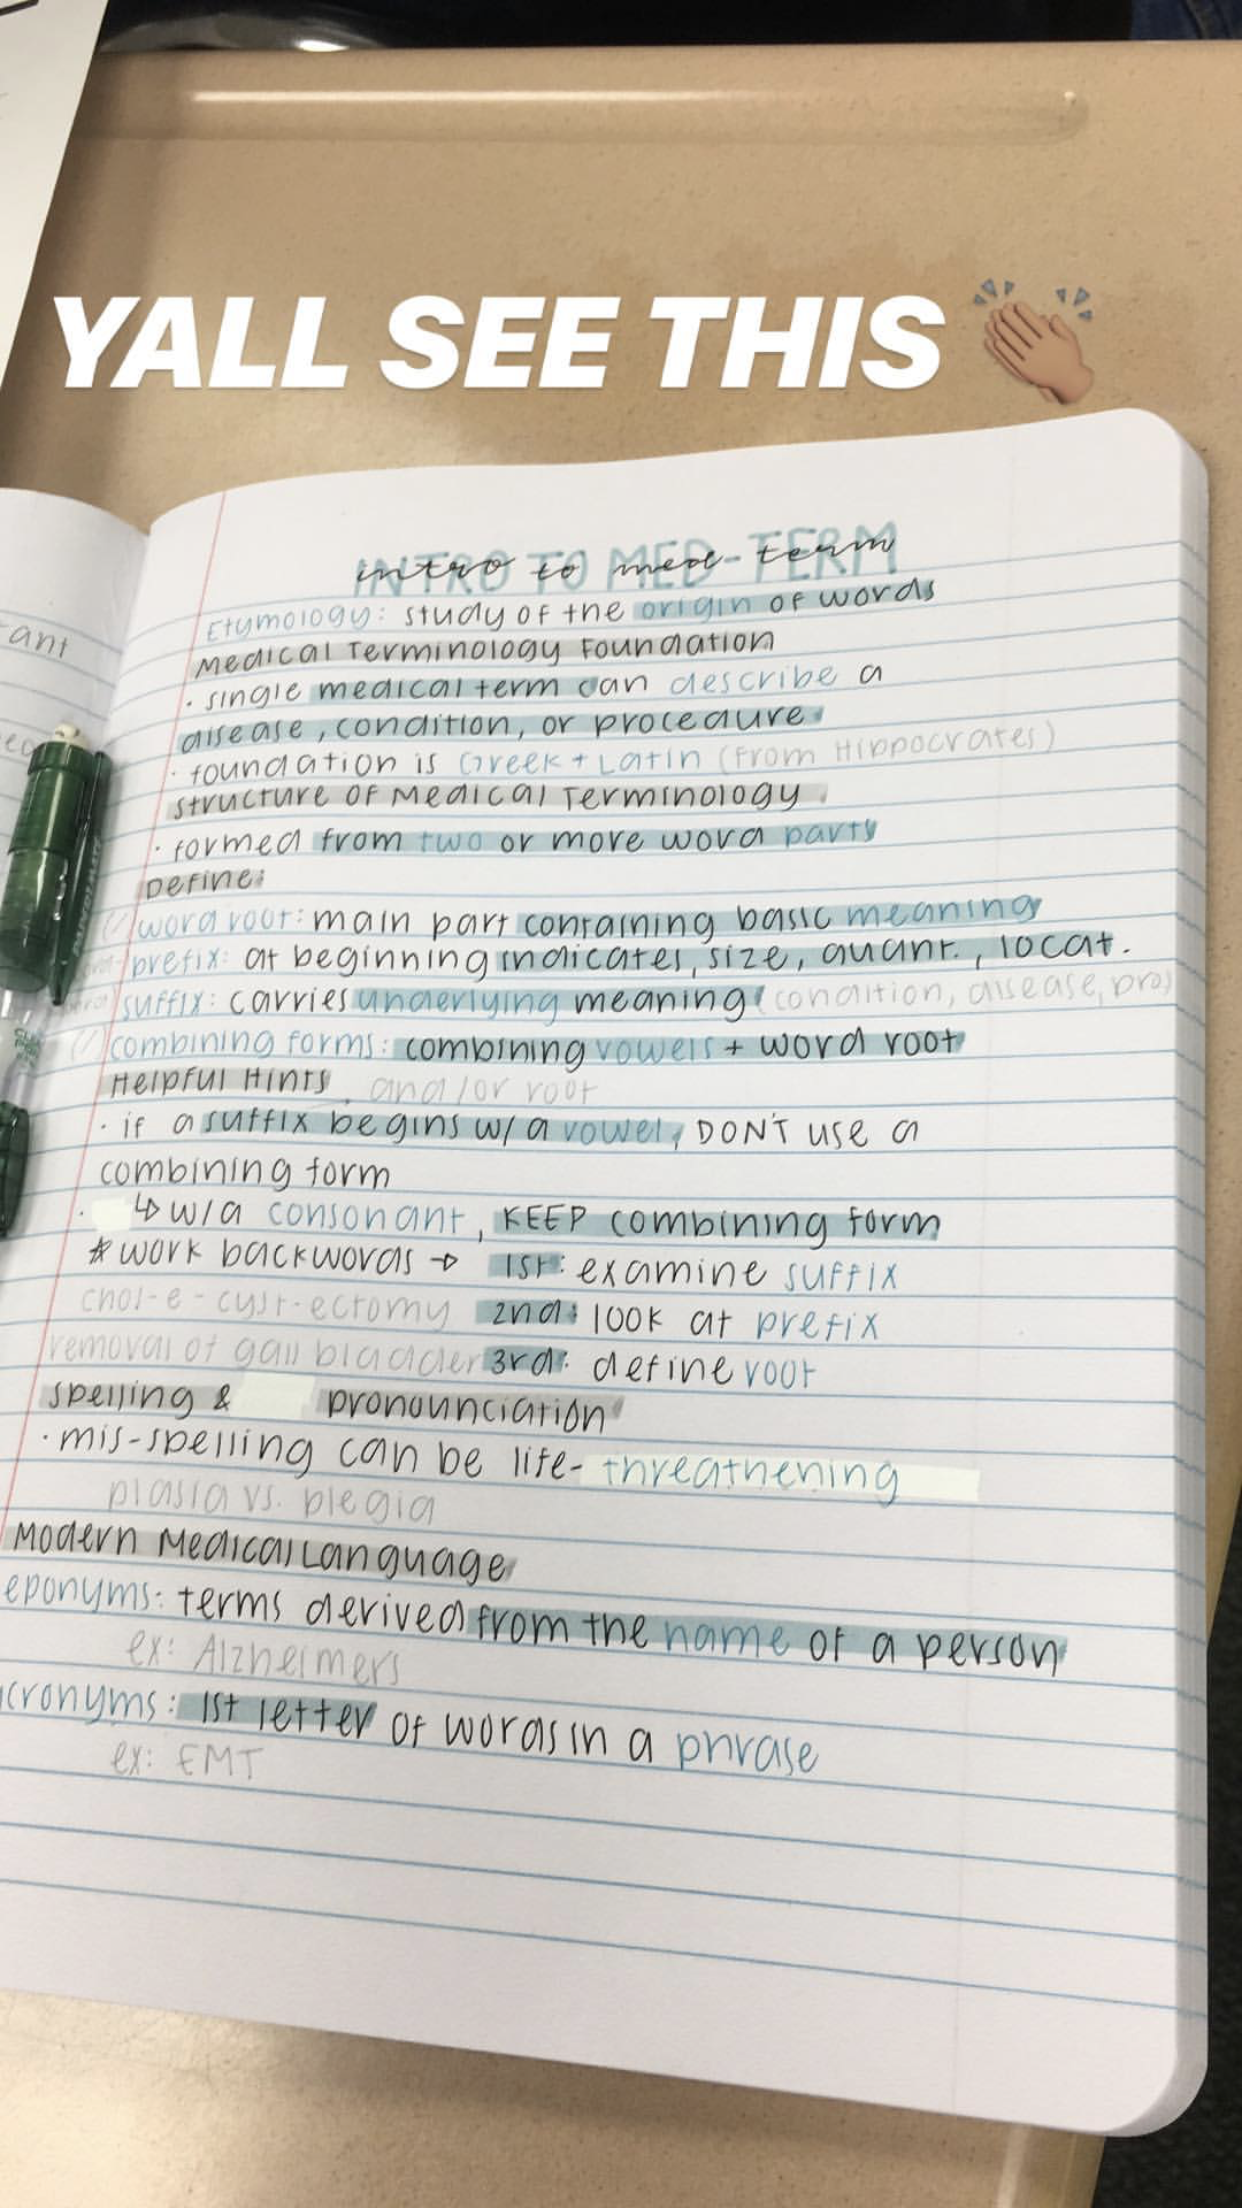 YALL SEE THIS
INTRO TO MED-TERM
intro to med-term
ant
Etymology: study of the origin of words
Medical Terminology Foundation
· single medical term can describe a
disease, condition, or procedure
· foundation is Greek + Latin (from Hippocrates)
structure of Medical Terminology
· formed from two or more word parts
Define:
word root: main part containing basic meaning
prefix: at beginning indicates, size, quant., locat.
suffix: carries underlying meaning (condition, disease, pro)
combining forms: combining vowels + word root
Helpful Hints and/or root
· if a suffix begins w/ a vowel, DON'T use a
combining form
· ↳ w/a consonant, KEEP combining form
* work backwords → 1st: examine suffix
chol-e-cyst-ectomy 2nd: look at prefix
removal of gall bladder 3rd: define root
spelling & pronounciation
· mis-spelling can be life-threathening
plasia vs. plegia
Modern Medical Language
eponyms: terms derived from the name of a person
ex: Alzheimers
cronyms: 1st letter of words in a phrase
ex: EMT